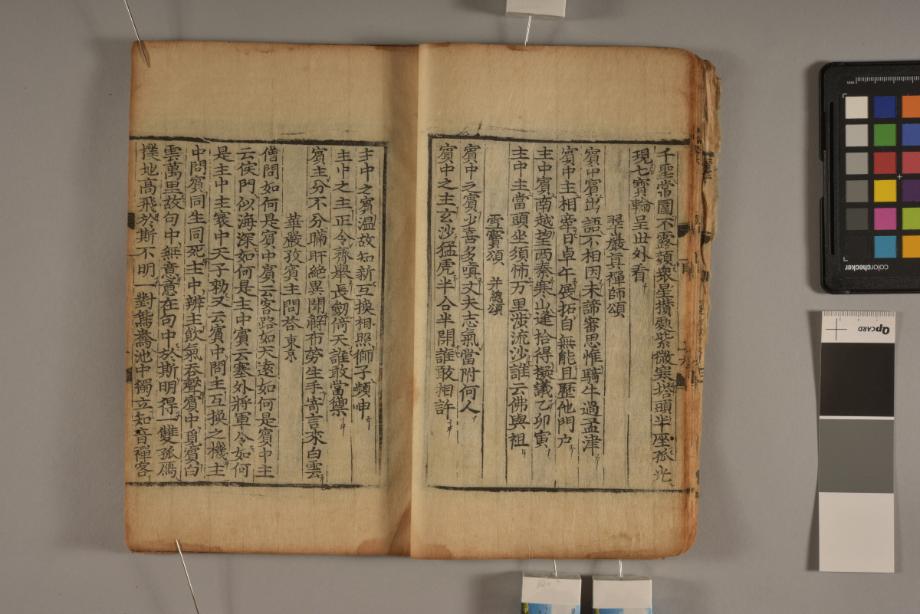 千聖當圖不露頭衆星攢處紫微寒塔頭半座孤光
現七寶輪呈世外看
翠嚴眞禪師頌
賓中賓出語不相因未諦審思惟騎牛過孟津
賓中主相牽日卓午展拓自無能且歷他門户
主中賓南越望西秦寒山逢拾得擬議乙卯寅
主中主當頭坐須怖万里涉流沙誰云佛與祖
雪竇頌 并緫頌
賓中之賓少喜多嗔丈夫志氣當附何人
賓中之主玄沙猛虎半合半開誰敢相許
主中之賓温故知新互換相照獅子頻呻
主中之主正令齊舉長劒倚天誰敢當禦
賓主分不分瞞盰絶異聞解布勞生手寄言來白雲
華嚴孜賓主問荅 東京
僧問如何是賓中賓云客路如天遠如何是賓中主
云侯門似海深如何是主中賓云塞外將軍令如何
是主中主寰中天子勑又云賓中問主互換之機主
中問賓同生同死主中辨主飲氣吞聲賓中覓賓白
雲萬里故句中無意意在句中於斯明得一雙孤鴈
撲地高飛於斯不明一對鴛鴦池中獨立知音禪客